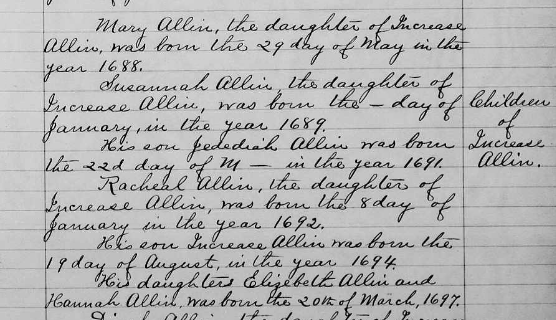 Mary Allin, the daughter of Increase
Allin, was born the 29 day of May in the
year 1688.
Susannah Allin, the daughter of
Increase Allin, was born the — day of
January, in the year 1689.
His son Jedediah Allin was born
the 22d day of M — in the year 1691.
Racheal Allin, the daughter of
Increase Allin, was born the 8 day of
January in the year 1692.
His son Increase Allin was born the
19 day of August, in the year 1694.
His daughters Elizebeth Allin and
Hannah Allin, was born the 20th of March, 1697.
Children
of
Increase
Allin.